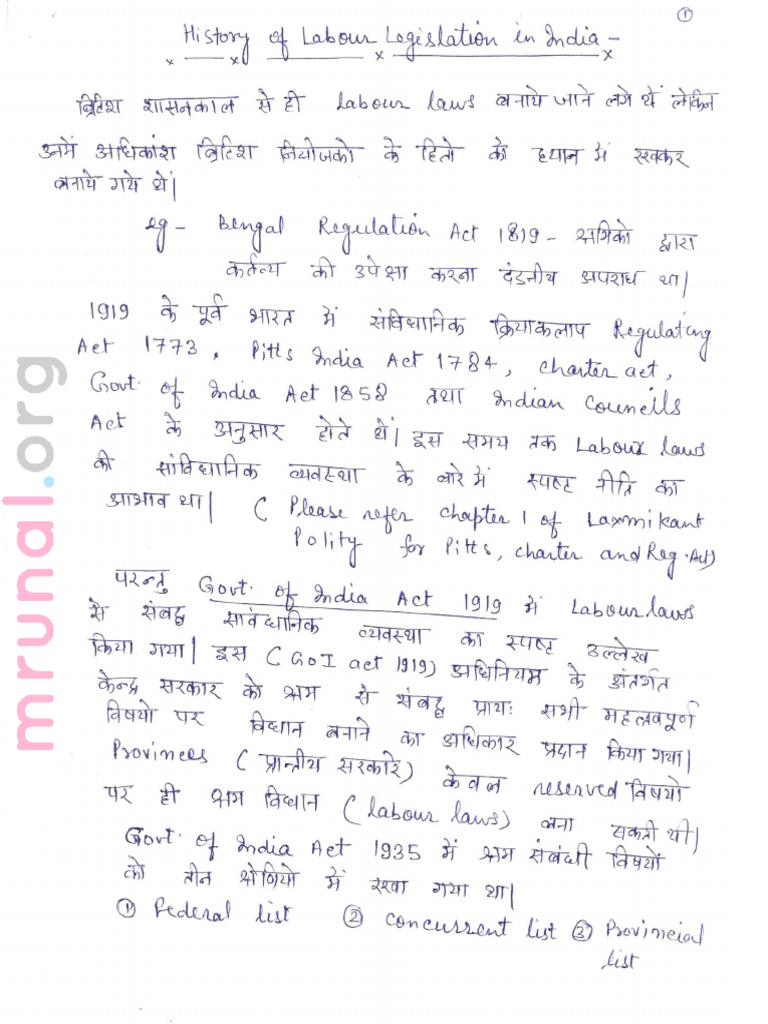 ①
History of Labour Legislation in India -
ब्रिटिश शासनकाल से ही Labour laws बनाये जाने लगे थें लेकिन
उनमें अधिकांश ब्रिटिश नियोजको के हितो को ध्यान में रखकर
बनाये गये थें|
eg - Bengal Regulation Act 1819 - श्रमिको द्वारा
कर्तव्य की उपेक्षा करना दंडनीय अपराध था|
1919 के पूर्व भारत में संविधानिक क्रियाकलाप Regulating
Act 1773, Pitts India Act 1784, charter act,
Govt. of India Act 1858 तथा Indian Councils
Act के अनुसार होते थें| इस समय तक Labour laws
की सांविधानिक व्यवस्था के बारे में स्पष्ट नीति का
आभाव था| ( Please refer chapter 1 of Laxmikant
Polity for Pitts, charter and Reg. Act)
परन्तु Govt. of India Act 1919 में Labour laws
से संबद्ध सांवधानिक व्यवस्था का स्पष्ट उल्लेख
किया गया| इस ( GoI act 1919) अधिनियम के अंतर्गत
केन्द्र सरकार को श्रम से संबद्ध प्रायः सभी महत्वपूर्ण
विषयो पर विधान बनाने का अधिकार प्रदान किया गया|
Provinces ( प्रान्तीय सरकारे) केवल reserved विषयो
पर ही श्रम विधान (labour laws) बना सकती थी|
Govt. of India Act 1935 में श्रम संबंधी विषयों
को तीन श्रेणियो में रखा गया था|
① Federal list ② concurrent list ③ Provincial
list
mrunal.org